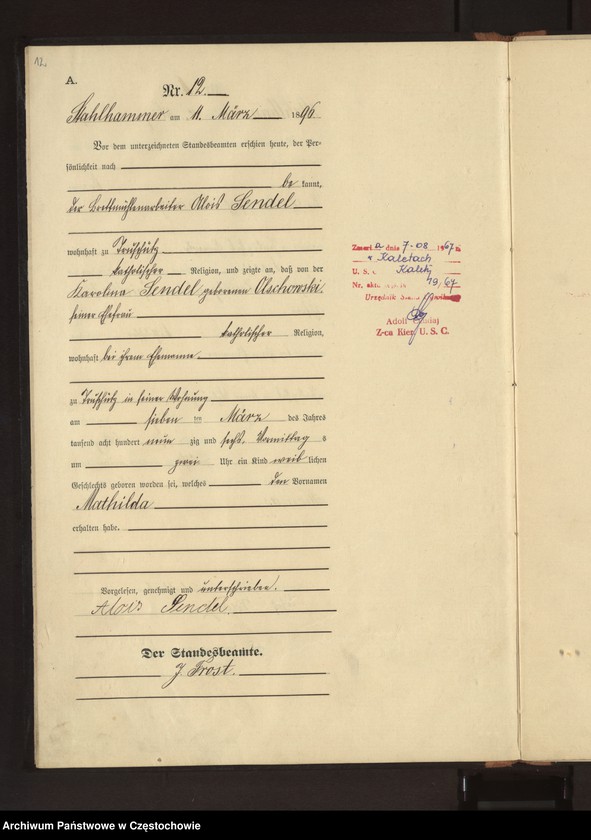 12.
A.
Nr. 12.
Stahlhammer am 11. März 1896
Vor dem unterzeichneten Standesbeamten erschien heute, der Per-
sönlichkeit nach
be kannt,
der Brettmühlenarbeiter Alois Sendel
wohnhaft zu Truschütz
katholischer Religion, und zeigte an, daß von der
Karolina Sendel geborenen Olschowski,
seiner Ehefrau
katholischer Religion,
wohnhaft bei ihrem Ehemanne
zu Truschütz in seiner Wohnung
am sieben ten März des Jahres
tausend acht hundert neun zig und sechs, Vormittag s
um zwei Uhr ein Kind weib lichen
Geschlechts geboren worden sei, welches den Vornamen
Mathilda
erhalten habe.
Vorgelesen, genehmigt und unterschrieben.
Alois Sendel
Der Standesbeamte.
J. Frost.
Zmarł a dnia 7-08 1967 r.
w Kaletach
U. S. C. Kalety
Nr. aktu 19/67
Urzędnik Stanu
Adolf
Z-ca Kier. U. S. C.
Archiwum Państwowe w Częstochowie